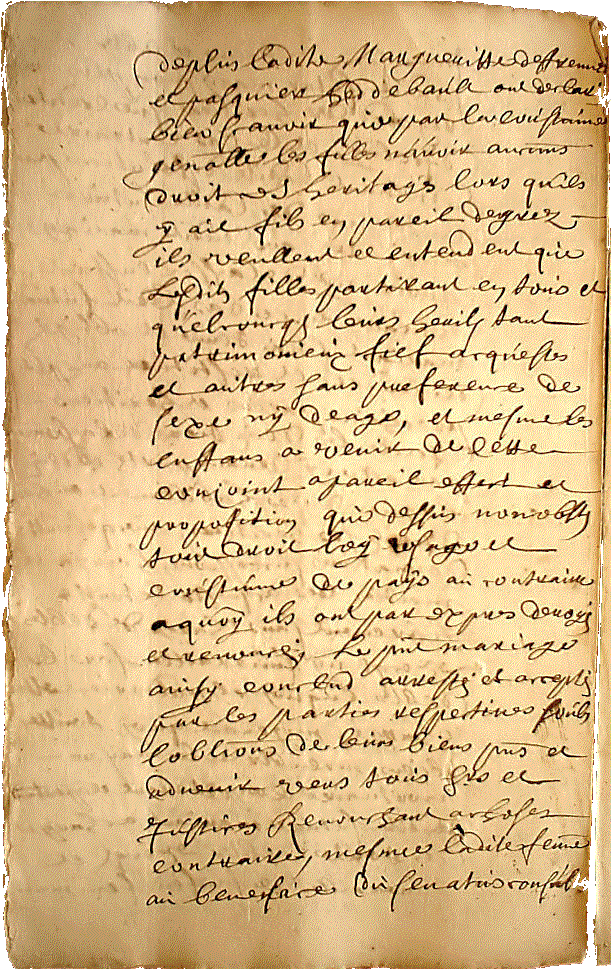 deplus ladite Margueritte deffrennes
et pasquier debault ont declaré
bien scavoir que par la coustume
genalle les filles n'avoir aucuns
droit es heritages lors quils
y ait fils en pareil degrez
ils veullent et entendent que
lesdits filles partiront en tous et
quelconcqs leurs herits tant
patrimonieux fief acquestes
et autres sans preference de
sexe ny de age, et mesme les
enffans a venir de cette
conjoint a pareil effect et
propofition que dessus nonobst
tout droit loy usage et
coustume de pays au contraire
a quoy ils ont par expres derogé
et renoncez le pnt mariage
ainsy conclud arresté et accepté
par les parties respectives soubs
loblions de leurs biens pns et
advenir vers tous srs et
justices Renonchant a choses
contraire, mesme ladite femme
au benefice du senatus consul